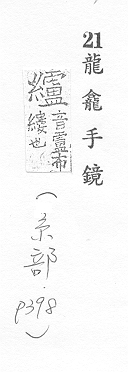 21龍龕手鏡
纑音盧布
縷也
(糸部．p398)